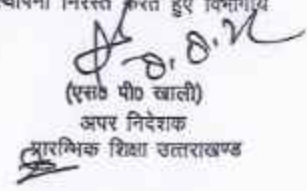 निरस्त करते हुए विभागीय
(एस० पी० खाली)
अपर निदेशक
प्रारम्भिक शिक्षा उत्तराखण्ड